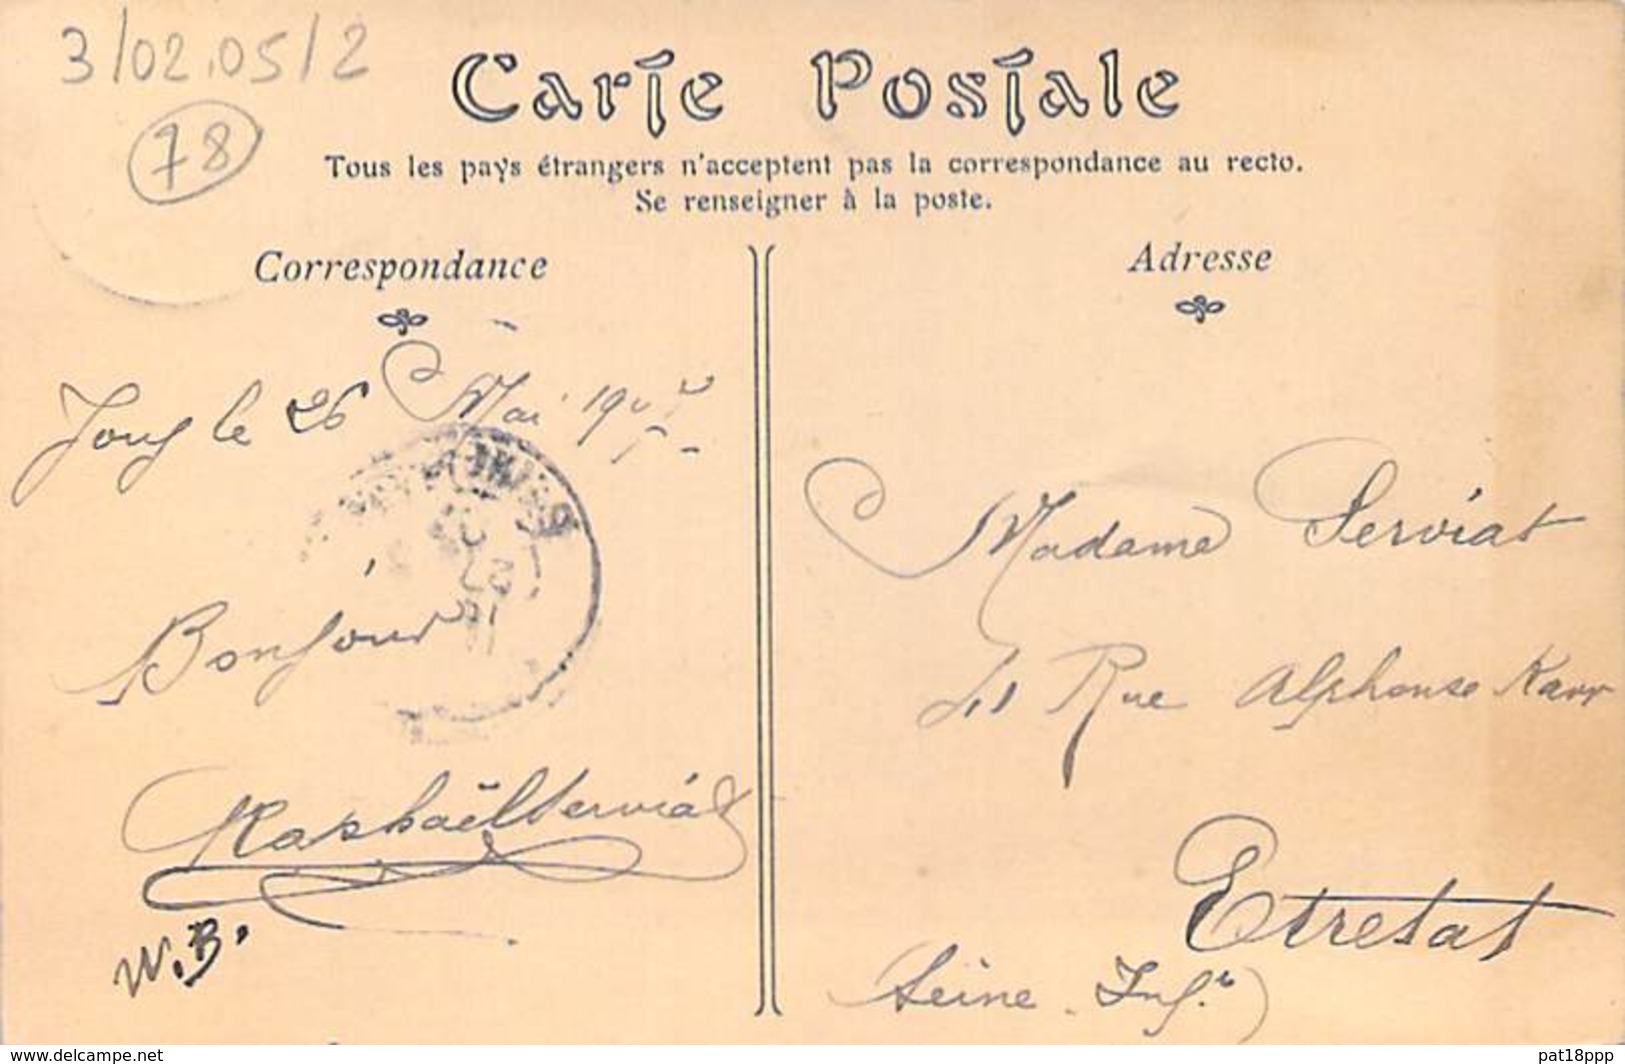 3/02.05/2
78
Carte Postale
Tous les pays étrangers n'acceptent pas la correspondance au recto.
Se renseigner à la poste.
Correspondance
Jouy le 26 Mai 1907
Bonjour
Raphaël Serviat
W.B.
Adresse
Madame Serviat
Rue Alphonse Karr
Etretat
Seine Inf.re)
www.delcampe.net
pat18ppp